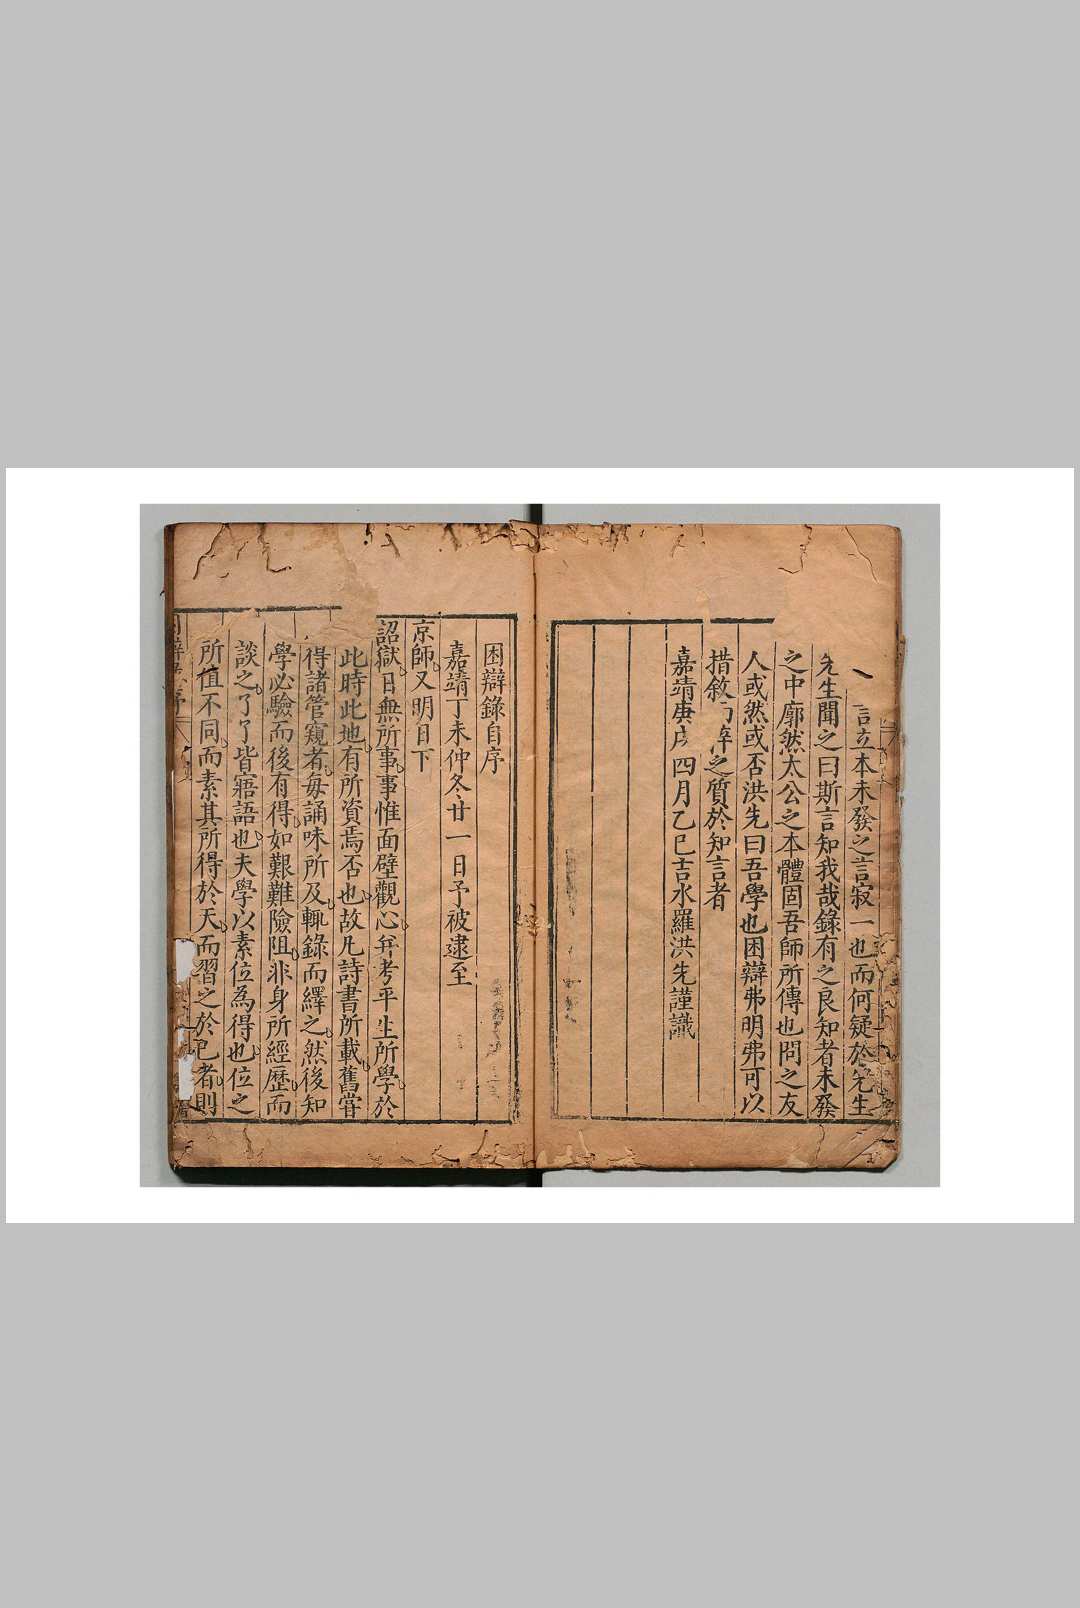 言立本未發之言寂一也而何疑於先生
先生聞之曰斯言知我哉錄有之良知者未發
之中廓然太公之本體固吾師所傳也問之友
人或然或否洪先曰吾學也困辯弗明弗可以
措敘 辯之質於知言者
嘉靖庚戌四月乙巳吉水羅洪先謹識
困辯錄自序
嘉靖丁未仲冬廿一日予被逮至
京師又明日下
詔獄日無所事事惟面壁觀心并考平生所學於
此時此地有所資焉否也故凡詩書所載舊嘗
得諸管窺者每誦味所及輒錄而繹之然後知
學必驗而後有得如艱難險阻非身所經歷而
談之了了皆寤語也夫學以素位為得也位之
所值不同而素其所得於天而習之於已者則